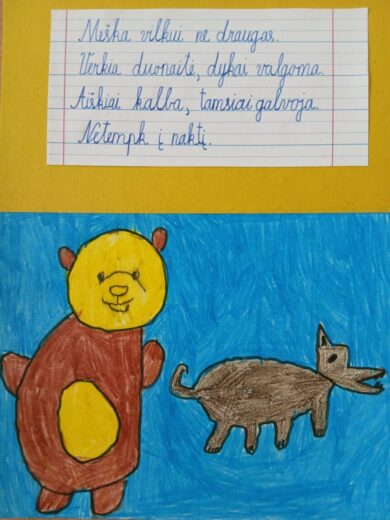 Meška vilkui ne draugas.
Verkia duonaitė, dykai valgoma.
Aiškiai kalba, tamsiai galvoja.
Netempk į naktį.